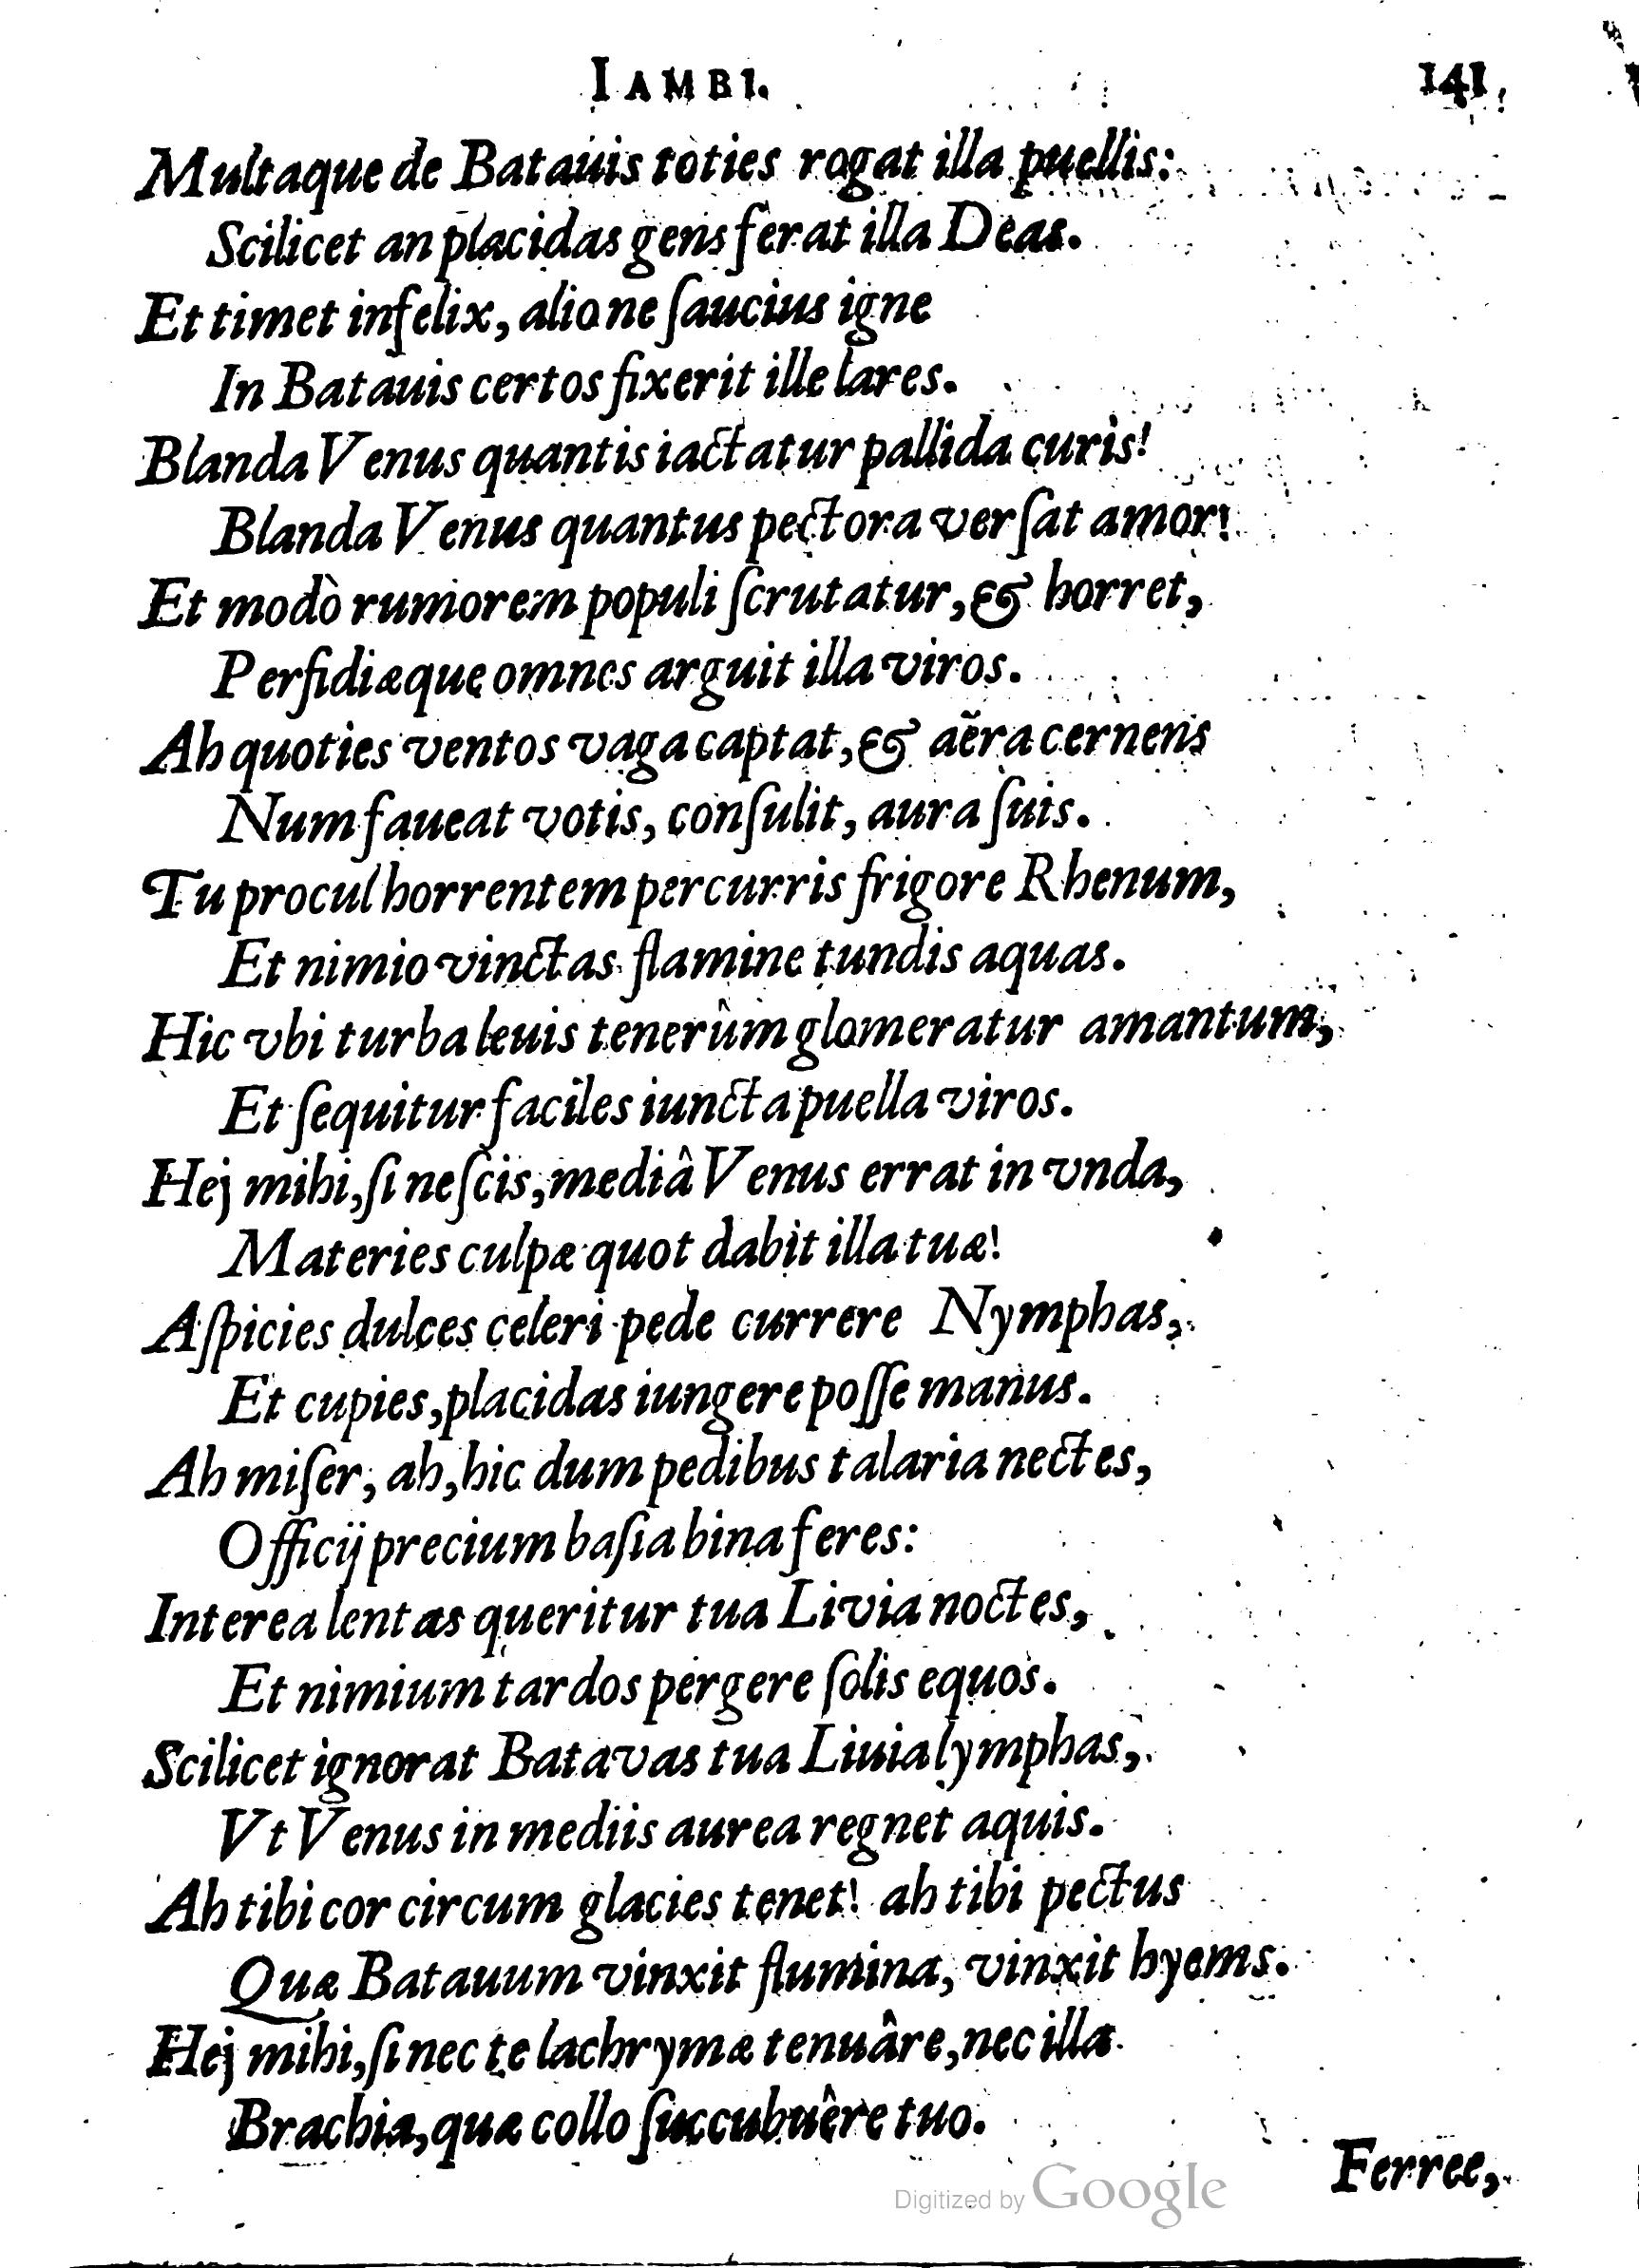 IAMBI. 141
Multaque de Batauis toties rogat illa puellis:
Scilicet an placidas gens ferat illa Deas.
Et timet infelix, alio ne ſaucius igne
In Batauis certos fixerit ille lares.
Blanda Venus quantis iactatur pallida curis!
Blanda Venus quantus pectora verſat amor!
Et modò rumorem populi ſcrutatur, & horret,
Perfidiæque omnes arguit illa viros.
Ah quoties ventos vaga captat, & aëra cernens
Num faueat votis, conſulit, aura ſuis.
Tu procul horrentem percurris frigore Rhenum,
Et nimio vinctas flamine tundis aquas.
Hic vbi turba leuis tenerûm glomeratur amantum,
Et ſequitur faciles iuncta puella viros.
Hej mihi, ſi neſcis, mediâ Venus errat in vnda,
Materies culpæ quot dabit illa tuæ!
Aſpicies dulces celeri pede currere Nymphas,
Et cupies, placidas iungere poſſe manus.
Ah miſer, ah, hic dum pedibus talaria nectes,
Officij precium baſia bina feres:
Interea lentas queritur tua Livia noctes,
Et nimium tardos pergere ſolis equos.
Scilicet ignorat Batavas tua Liuia lymphas,
Vt Venus in mediis aurea regnet aquis.
Ah tibi cor circum glacies tenet! ah tibi pectus
Quæ Batauum vinxit flumina, vinxit hyems.
Hej mihi, ſi nec te lachrymæ tenuâre, nec illa
Brachia, quæ collo ſuccubuêre tuo.
Ferree,
Digitized by Google